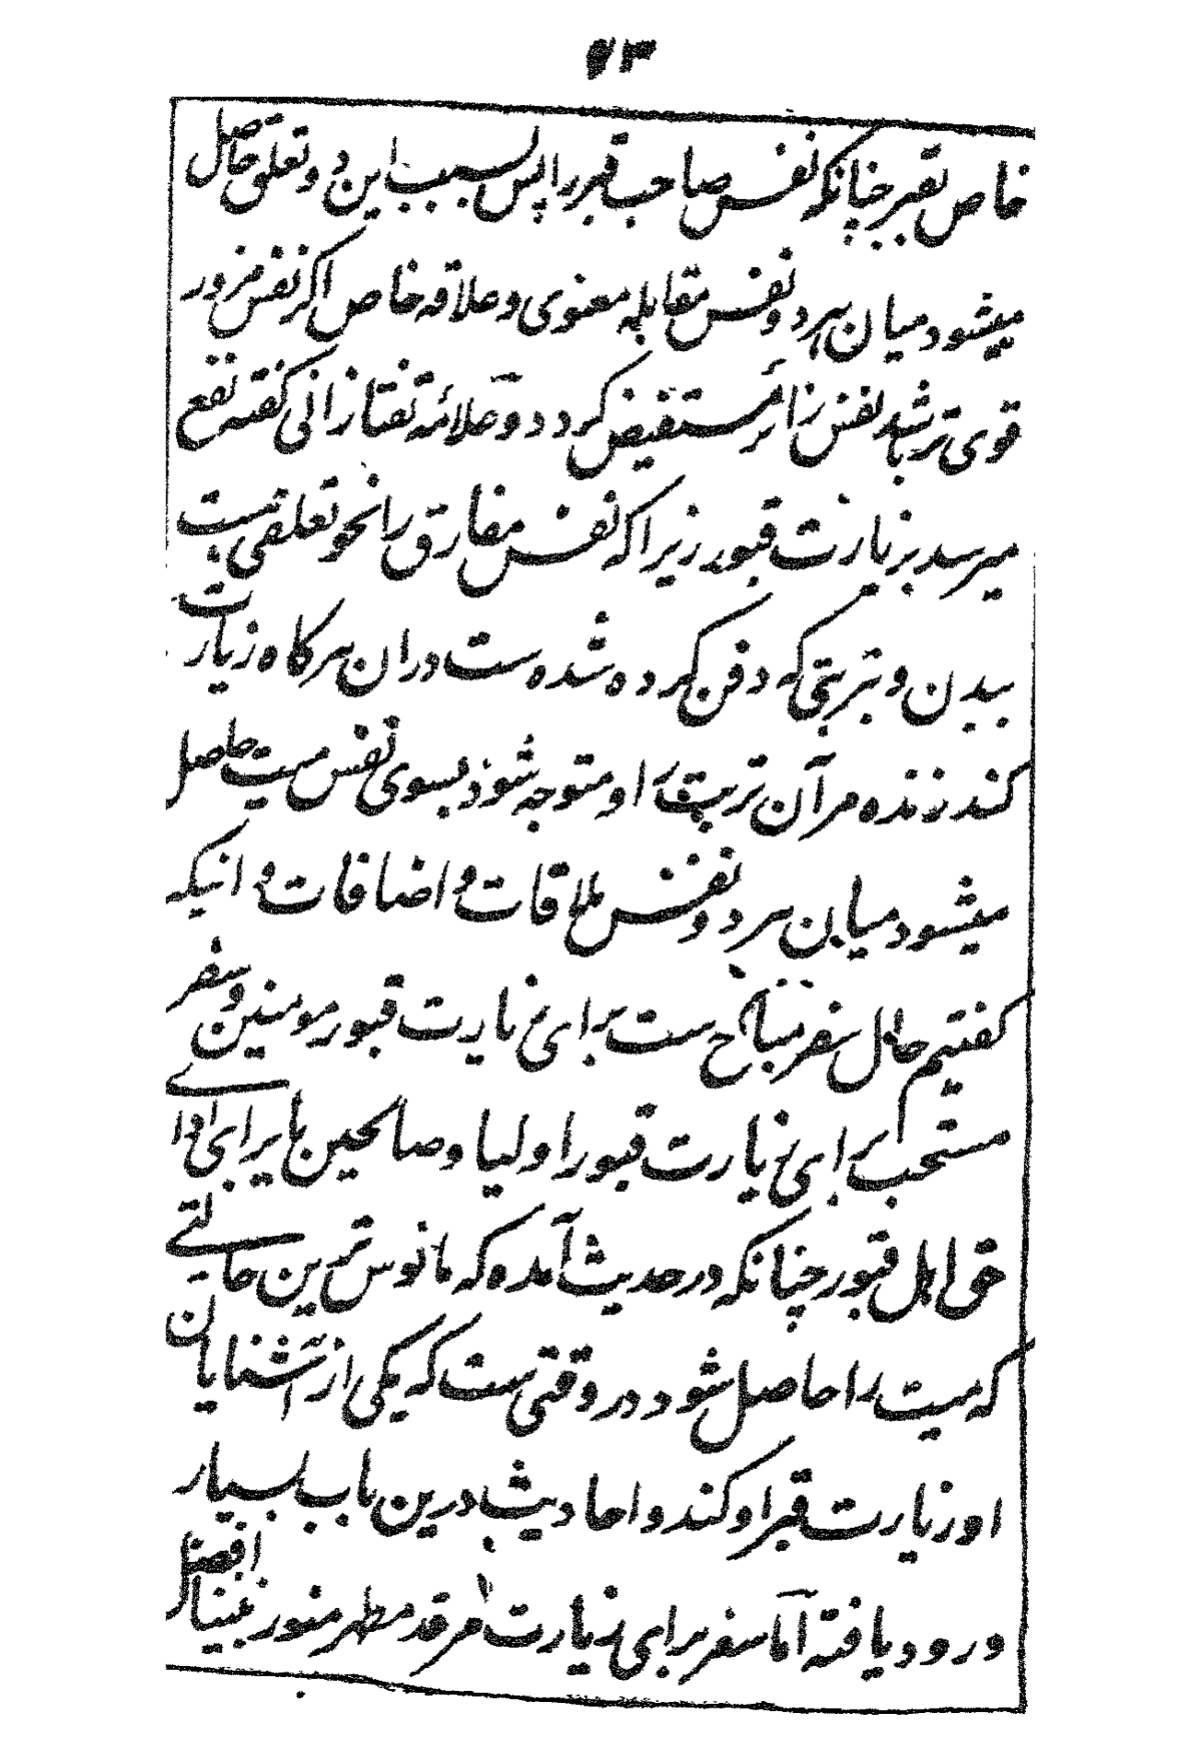 ۷۳
خاص بقبر چنانکه نفس صاحب قبر را پس بسبب این دو تعلق حاصل
میشود میان هر دو نفس مقابله معنوی و علاقه خاص اگر نفس مزور
قوی تر باشد نفس زائر مستفیض گردد و علامه تفتازانی گفته نفع
میرسد بزیارت قبور زیرا که نفس مفارق را نحو تعلقی هست
ببدن و تربتی که دفن کرده شده ست دران هرگاه زیارت
کند زنده مر آن تربت را و متوجه شود بسوی نفس میت حاصل
میشود میان هر دو نفس ملاقات و اضافات و انیکه
گفتیم حال سفر مباح ست برای زیارت قبور مومنین و سفر
مستحب برای زیارت قبور اولیا و صالحین یا برای ادای
حق اهل قبور چنانکه در حدیث آمده که مانوس ترین حالتے
که میت را حاصل شود در وقتی ست که یکی از آشنایان
او زیارت قبر او کند و احادیث درین باب بسیار
ورود یافته اما سفر برای زیارت مرقد مطهر منور نبینا افضل